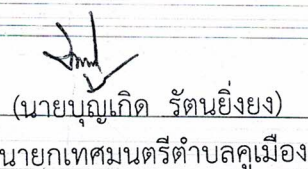 (นายบุญเกิด รัตนยิ่งยง)
นายกเทศมนตรีตำบลคูเมือง